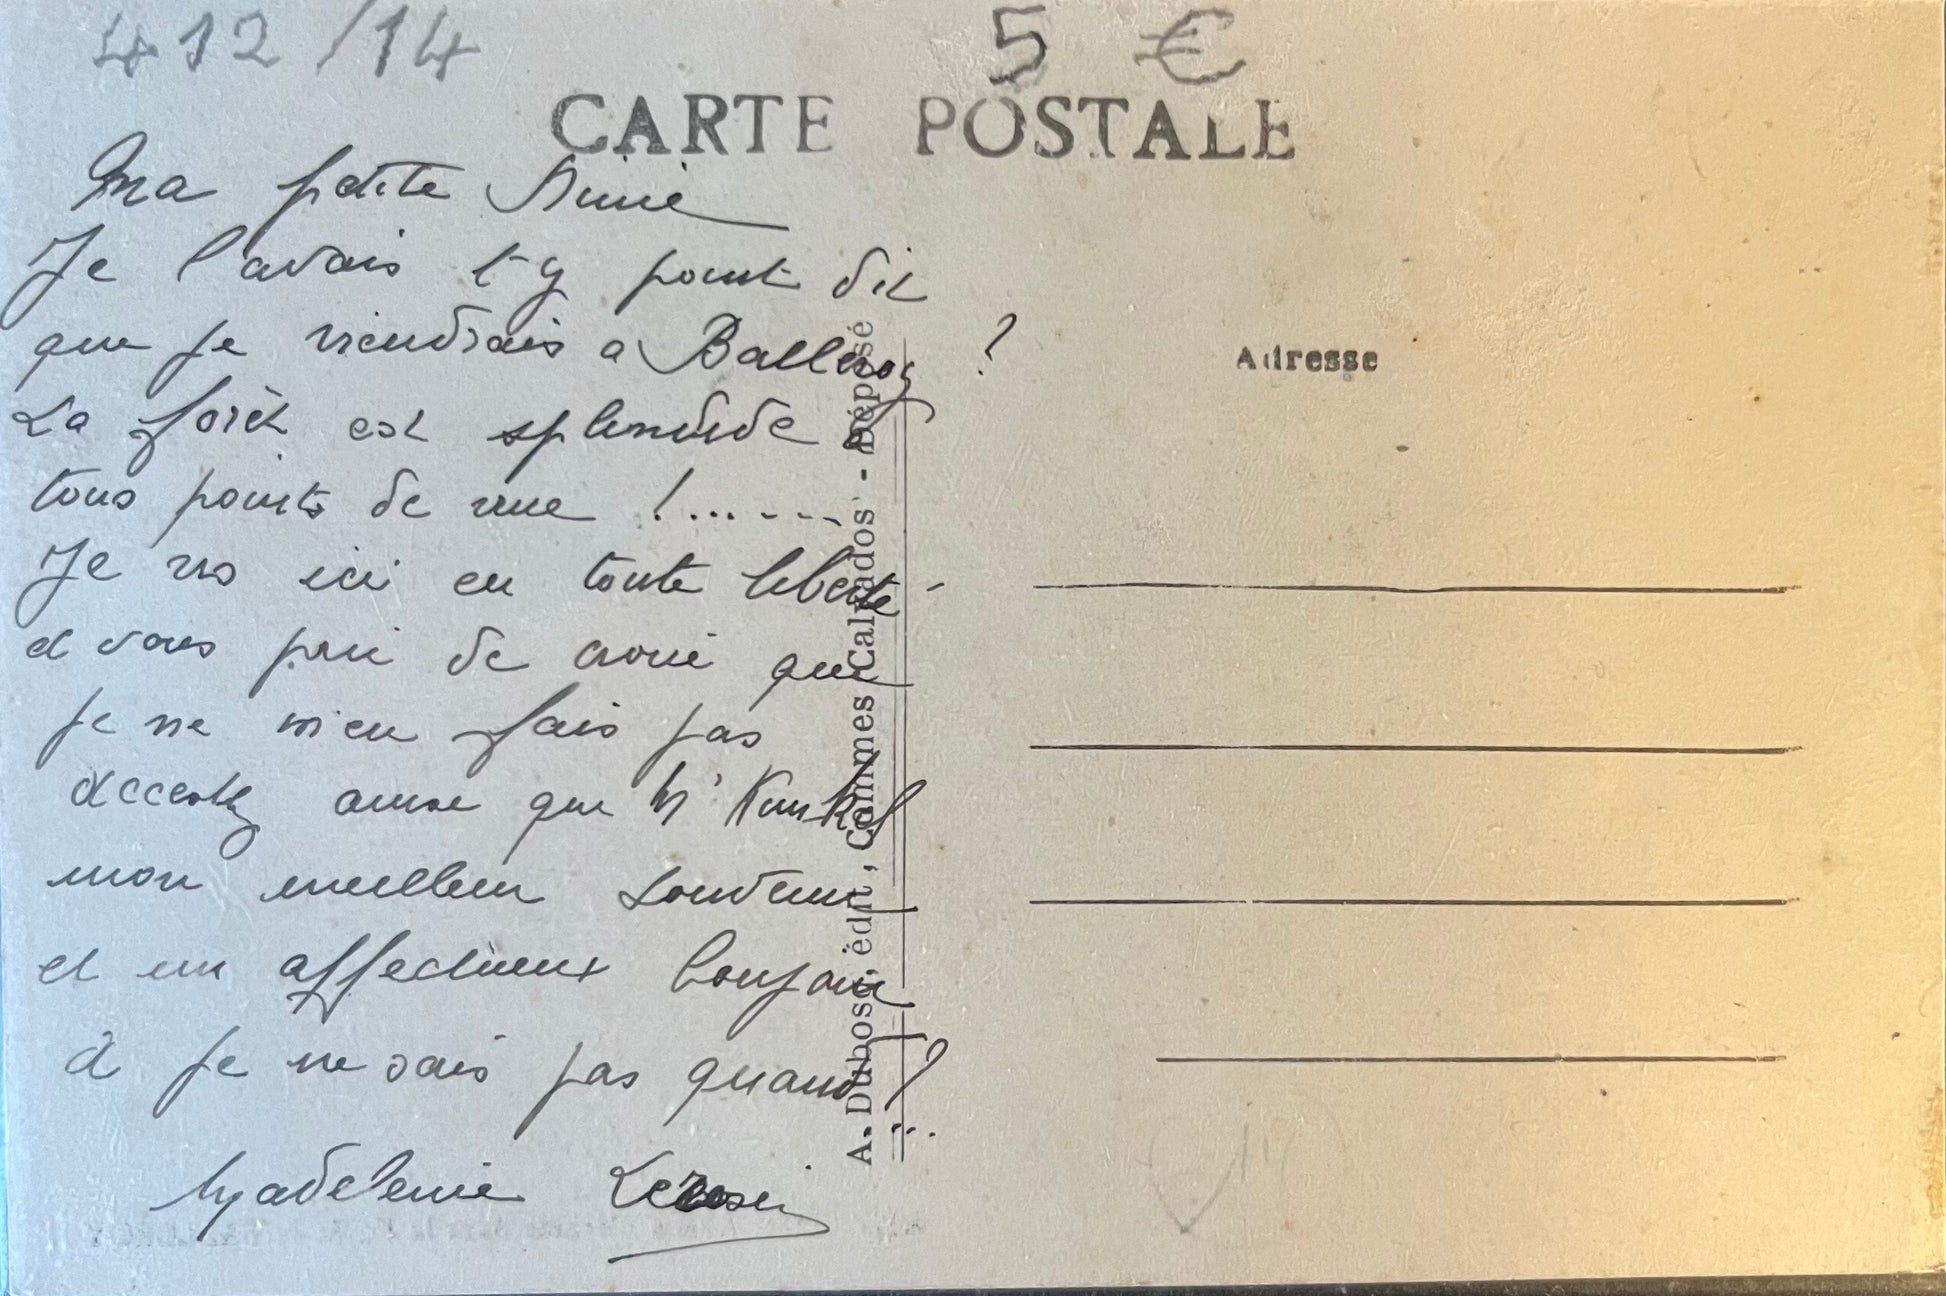 412/14
5 €
CARTE POSTALE
Ma petite Ninie
Je l'avais t-y point dit
que je viendrais a Balleroy ?
La forêt est splendide a
tous points de vue !......
Je vis ici en toute liberté
et vous prie de croire que
je ne m'en fais pas
acceptez ainsi que Mr Kunkel
mon meilleur souvenir
et un affectueux bonjour
à je ne sais pas quand ?..
Madeleine
Adresse
A. Dubosq, édit, Commes Calvados - Déposé